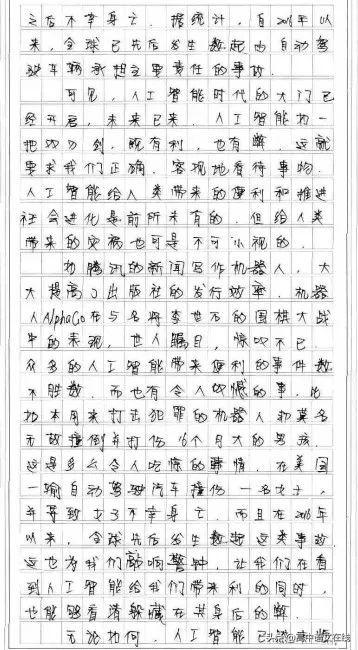 之后不幸身亡。据统计,自2016年以
来,全球已先后发生数起由自动驾
驶车辆承担主要责任的事故。
可见,人工智能时代的大门已
经开启,未来已来。人工智能如一
把双刃剑,既有利,也有弊。这就
要求我们正确、客观地看待事物。
人工智能给人类带来的便利和推进
社会进化是前所未有的,但给人类
带来的灾祸也可是不可小视的。
如腾讯的新闻写作机器人,大
大提高了出版社的发行效率。机器
人AlphaGo在与名将李世石的围棋大战
中的表现,世人瞩目,惊叹不已。
众多的人工智能带来便利的事件数
不胜数。而也有令人叹憾的事,比
如本用来打击犯罪的机器人却莫名
无故撞倒并打伤16个月大的男孩。
这是多么令人吃惊的事情。在美国
一输自动驾驶汽车撞伤一名女士,
并导致女子不幸身亡。而且在2016年
以来,全球先后发生数起这类事故
这也为我们敲响警钟,让我们在看
到人工智能给我们带来利的同时,
也能够看清躲藏在其身后的弊。
无论如何,人工智能已
头条@高中语文在线